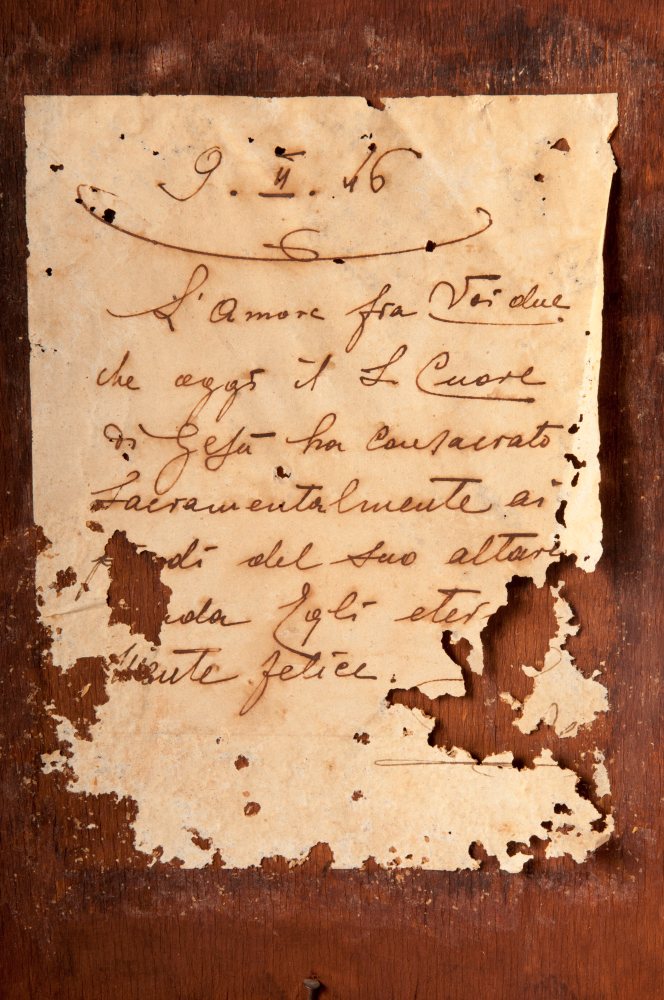 9. II. 46
L'Amore fra Voi due
che oggi il S. Cuore
di Gesù ha consacrato
Sacramentalmente ai
piedi del suo altare
da Egli eter
mente felice.